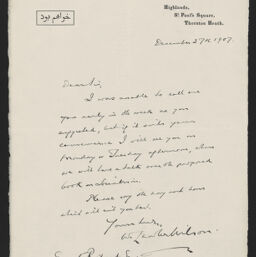 خواهم بود
Highlands,
St Paul's Square,
Thornton Heath.
December 27th 1907.
Dear Sir,
I was unable to call on
you early in the week as you
suggested, but if it suits your
convenience I will see you on
Monday or Tuesday afternoon, when
we will have a talk on the proposed
book on
Please say the day and hour
which will suit you best.
Yours truly,
Wilson.